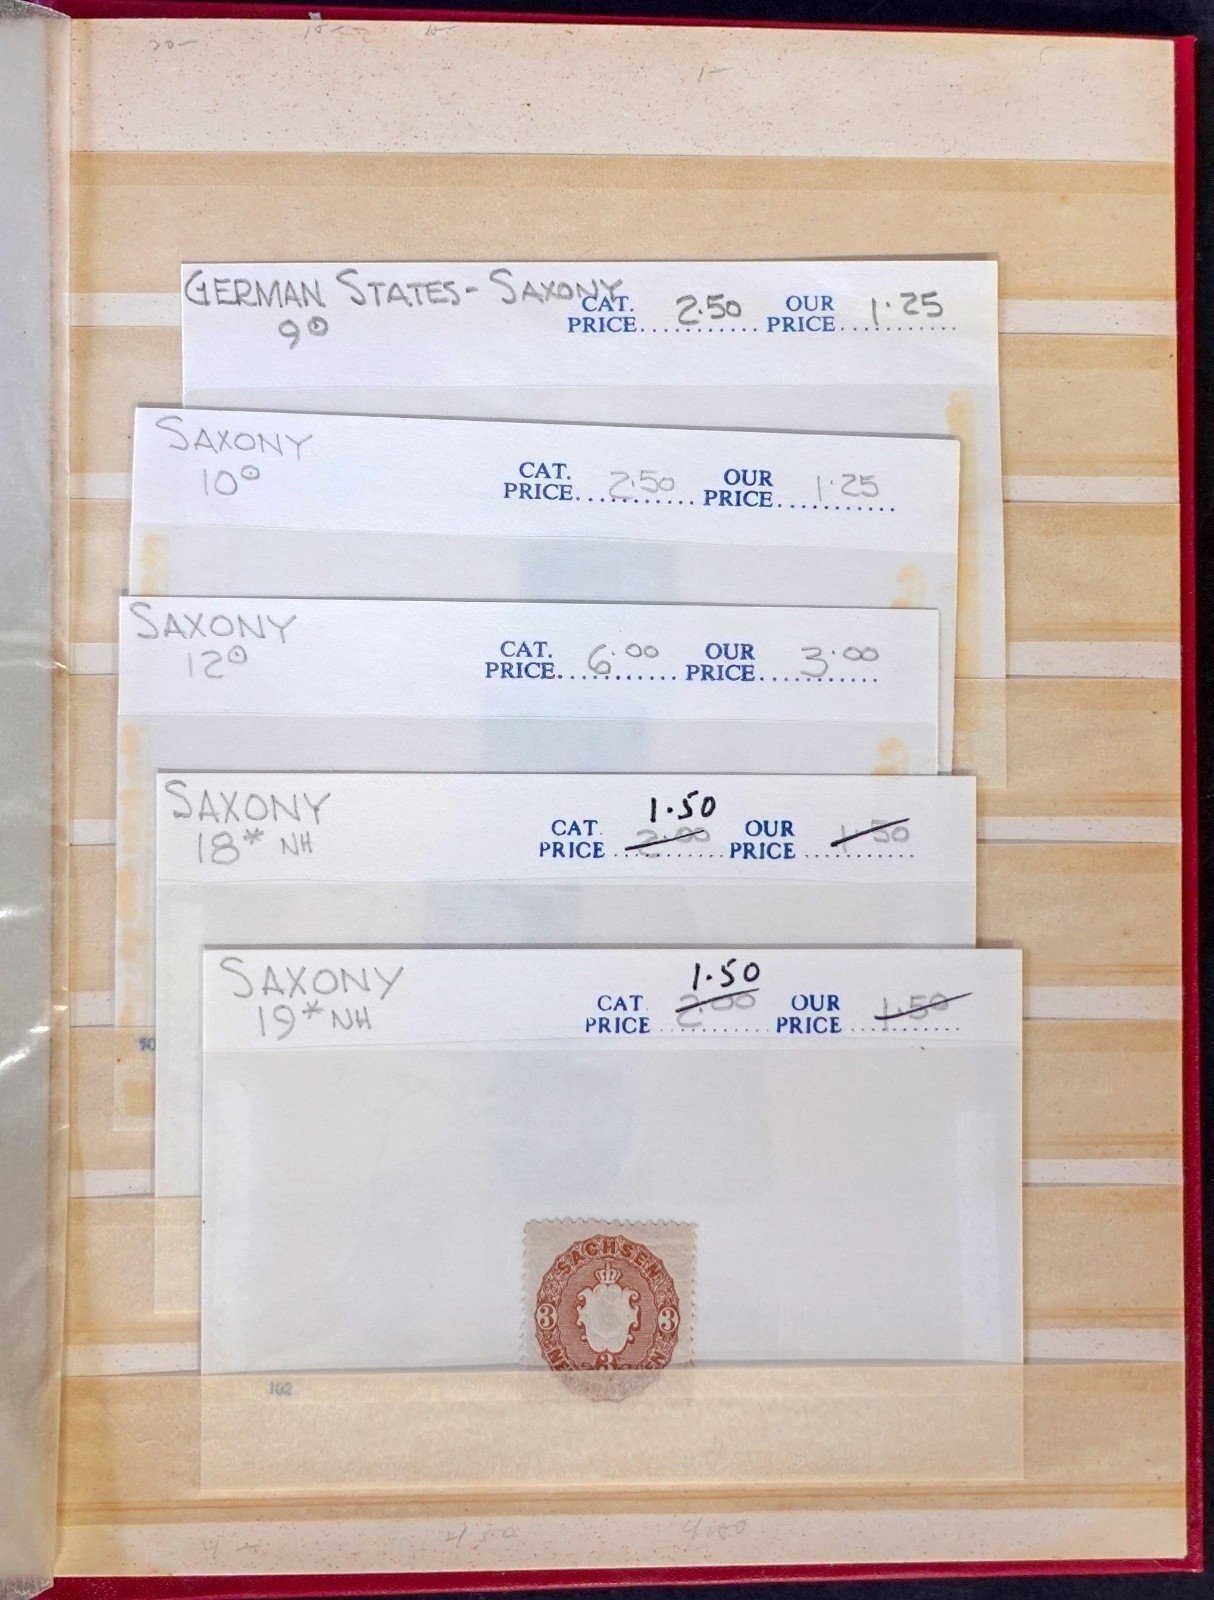 20-
1-
GERMAN STATES- SAXONY
9⊙
CAT. PRICE............ 2.50 OUR PRICE........... 1.25
SAXONY
10⊙
CAT. PRICE............ 2.50 OUR PRICE........... 1.25
SAXONY
12⊙
CAT. PRICE............ 6.00 OUR PRICE........... 3.00
SAXONY
18* NH
1.50
CAT. PRICE............ 2.00 OUR PRICE........... 1.50
SAXONY
19* NH
1.50
CAT. PRICE............ 2.00 OUR PRICE........... 1.50
SACHSEN
3 3
3
102
450